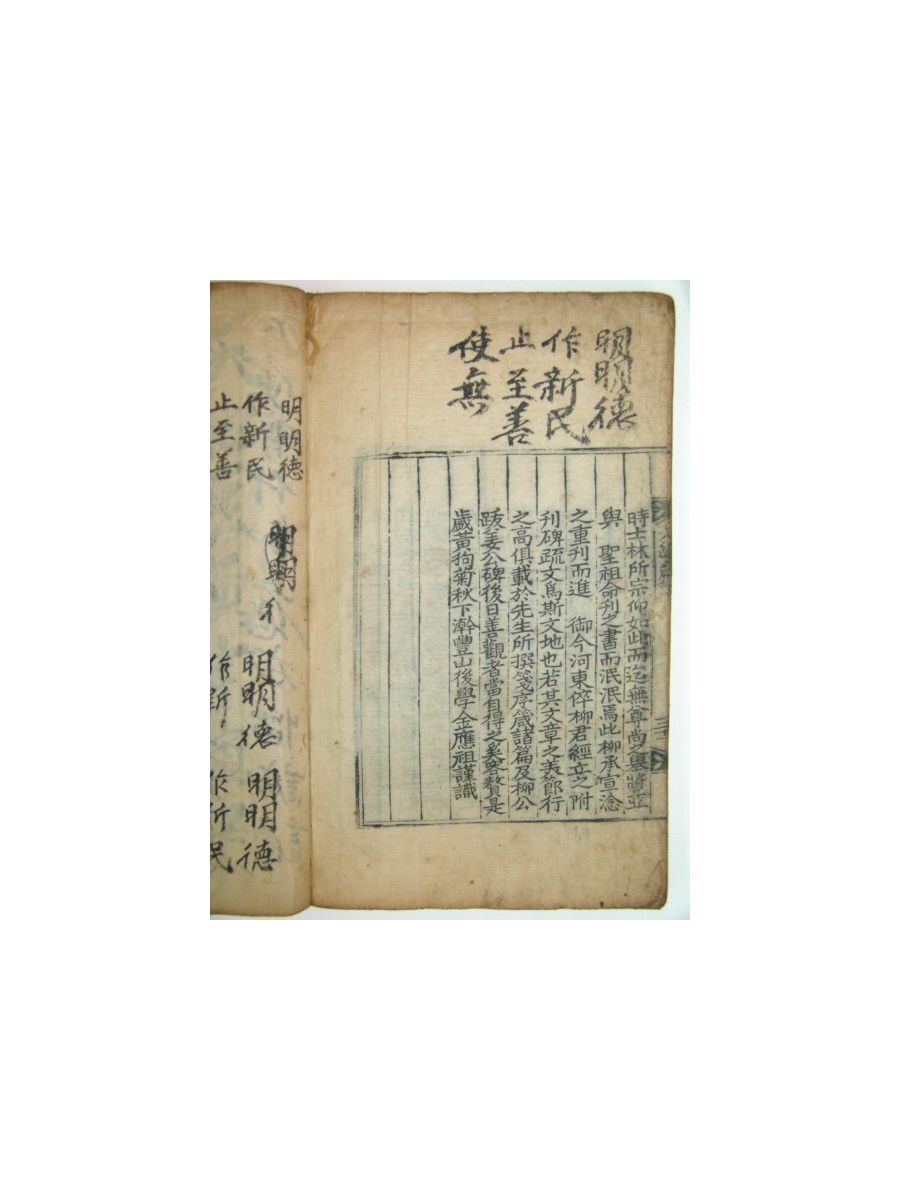 明明德
作新民
止至善
使無
時士林所宗仰如此而迄無尊尚之擧將至
與 聖祖命刊之書而泯泯焉此柳承宣淰
之重刊而進 御今河東倅柳君經立之附
刊碑疏文爲斯文地也若其文章之美節行
之高俱載於先生所撰箋序箴諸篇及柳公
跋姜公碑後日善觀者當自得之奚容贅是
歲黃狗菊秋下澣豐山後學金應祖謹識
三
明明德
作新民
止至善
明明
彳
明明德
作新
明明德
作新民